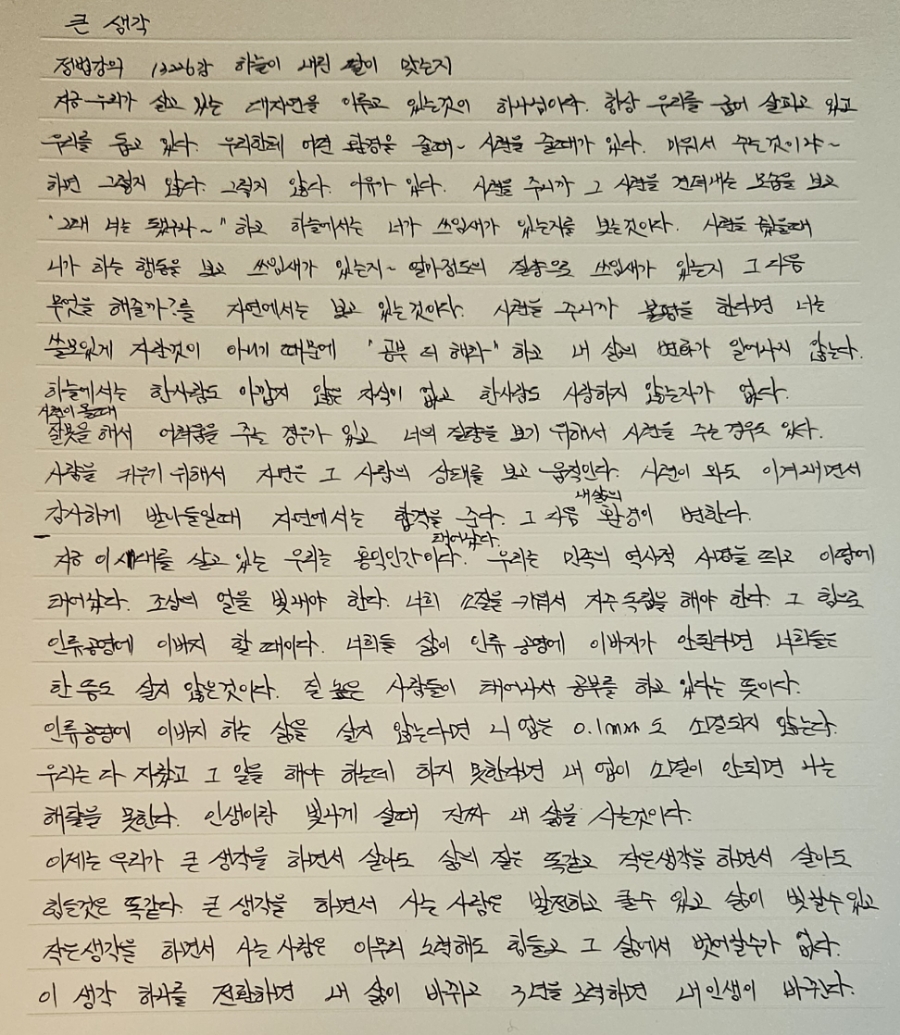 큰 생각
정법강의 13226강 하늘이 내린 딸이 맞는지
지금 우리가 살고 있는 대자연을 이루고 있는것이 하나님이다. 항상 우리를 굽어 살피고 있고
우리를 돕고 있다. 우리한테 어떤 환경을 줄때~ 시련을 줄때가 있다. 미워서 주는것이냐~
하면 그렇지 않다. 그렇지 않다. 이유가 있다. 시련을 주니까 그 시련을 견뎌내는 모습을 보고
"그래 너는 됐구나~" 하고 하늘에서는 너가 쓰임새가 있는지를 보는것이다. 시련을 줬을때
니가 하는 행동을 보고 쓰임새가 있는지~ 얼마정도의 질량으로 쓰임새가 있는지 그 다음
무엇을 해줄까?를 자연에서는 보고 있는것이다. 시련을 주니까 불평을 한다면 너는
쓸모있게 자란것이 아니기 때문에 "공부 더 해라" 하고 내 삶의 변화가 일어나지 않는다.
하늘에서는 한사람도 아깝지 않은 자식이 없고 한사람도 사랑하지 않는자가 없다.
시련이 올때
잘못을 해서 어려움을 주는 경우가 있고 너의 질량을 보기 위해서 시련을 주는 경우도 있다.
사람을 키우기 위해서 자연은 그 사람의 상태를 보고 움직인다. 시련이 와도 이겨내면서
내 삶의
감사하게 받아들일때 자연에서는 합격을 준다. 그 다음 환경이 변한다.
태어났다.
지금 이 시대를 살고 있는 우리는 홍익인간이다. 우리는 민족의 역사적 사명을 띄고 이땅에
태어났다. 조상의 얼을 빛내야 한다. 너희 소질을 키워서 자주 독립을 해야 한다. 그 힘으로
인류공영에 이바지 할 때이다. 너희들 삶이 인류 공영에 이바지가 안된다면 너희들은
한 뜸도 살지 않은것이다. 질 높은 사람들이 태어나서 공부를 하고 있다는 뜻이다.
인류공영에 이바지 하는 삶을 살지 않는다면 니 업은 0.1mm도 소멸되지 않는다.
우리는 다 자랐고 그 일을 해야 하는데 하지 못한다면 내 업이 소멸이 안되면 나는
해탈을 못한다. 인생이란 빛나게 살때 진짜 내 삶을 사는것이다.
이제는 우리가 큰 생각을 하면서 살아도 삶의 질은 똑같고 작은생각을 하면서 살아도
힘든것은 똑같다. 큰 생각을 하면서 사는 사람은 발전하고 클수 있고 삶이 빛날수 있고
작은생각을 하면서 사는 사람은 아무리 노력해도 힘들고 그 삶에서 벗어날수가 없다.
이 생각 하나를 전환하면 내 삶이 바뀌고 3년을 노력하면 내 인생이 바뀐다.